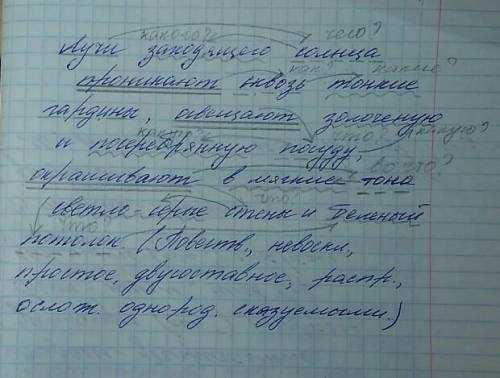 какого? чего?
Лучи заходящего солнца
как? какие?
проникают сквозь тонкие
гардины, освещают золоченую
какую? что? какую?
и посребрянную посуду,
во что?
окрашивают в мягкие тона
что?
светло-серые стены и беленый
что?
потолок (Повеств., невоскл.,
простое, двусоставное, распр.,
ослож. однород. сказуемыми.)